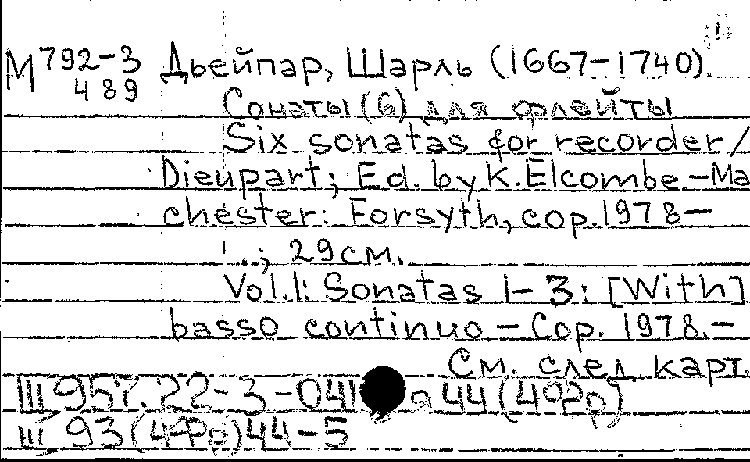 М 792-3 Дьейпар, Шарль (1667-1740).
489
Сонаты (6) для флейты
Six sonatas for recorder /
Dieupart; Ed. by K. Elcombe. - Ma
chester: Forsyth, cop. 1978 -
...; 29 см.
Vol. 1: Sonatas 1-3: [With]
basso continuo - Cop. 1978. -
См. след карт.
Ш 957.22-3-041 я 44 (4Фр)
Ш 93 (4Фр) 44-5